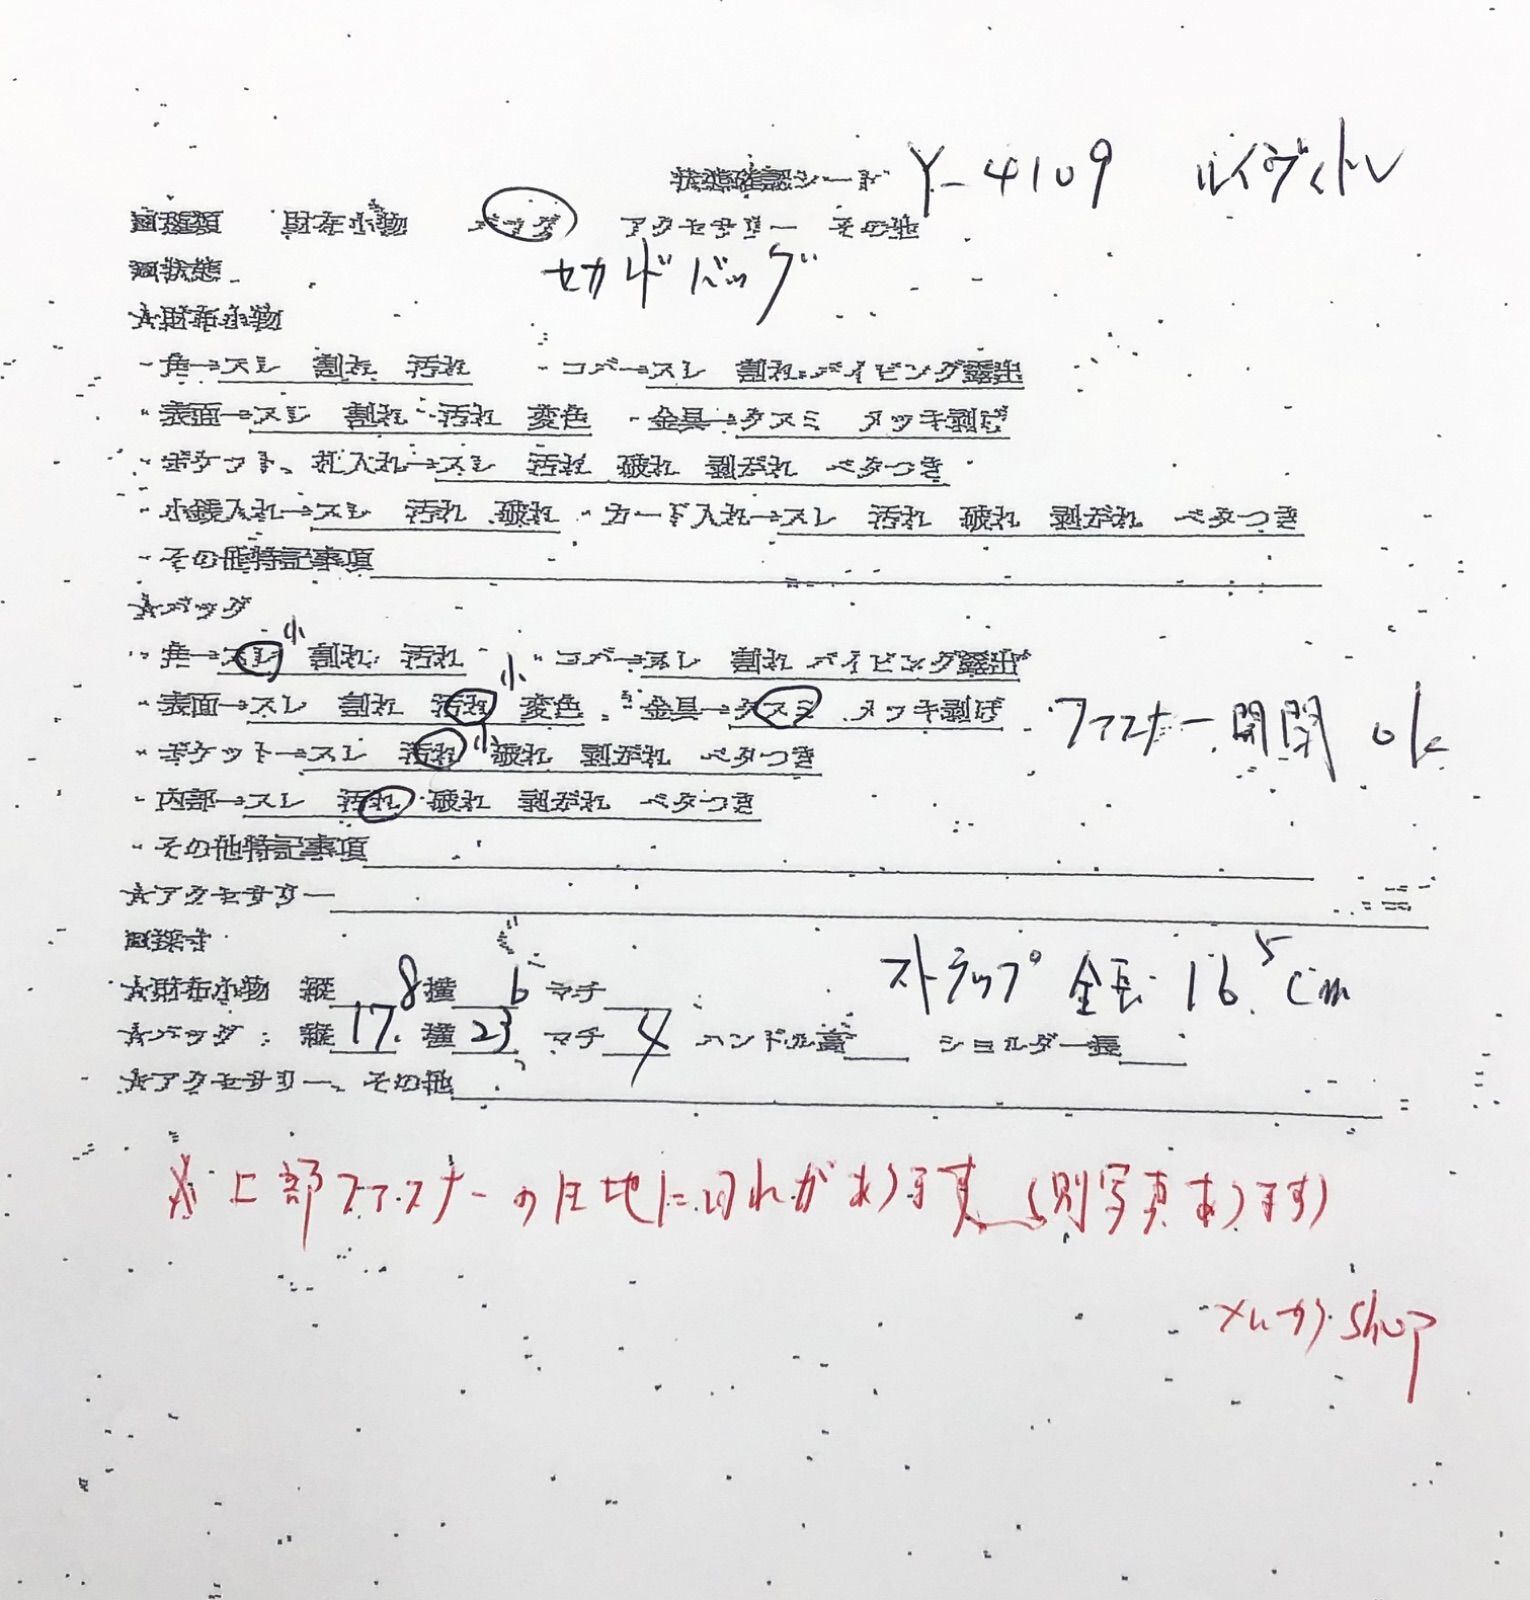 状態確認シート Y-4109 ルイヴィトン
■種類 財布小物 バッグ アクセサリー その他
■状態 セカンドバッグ
☆財布小物
・角→スレ 割れ 汚れ ・コバ→スレ 割れ パイピング露出
・表面→スレ 割れ 汚れ 変色 ・金具→クスミ メッキ剥げ
・ポケット、札入れ→スレ 汚れ 破れ 剥がれ ベタつき
・小銭入れ→スレ 汚れ 破れ ・カード入れ→スレ 汚れ 破れ 剥がれ ベタつき
・その他特記事項
☆バッグ
・角→スレ小 割れ 汚れ ・コバ→スレ 割れ パイピング露出
・表面→スレ 割れ 汚れ小 変色 ・金具→クスミ メッキ剥げ ファスナー開閉 ok
・ポケット→スレ 汚れ小 破れ 剥がれ ベタつき
・内部→スレ 汚れ 破れ 剥がれ ベタつき
・その他特記事項
☆アクセサリー
■採寸 ストラップ 全長 16.5cm
☆財布小物 縦 8 横 6 マチ
☆バッグ 縦 17. 横 23 マチ 4 ハンドル高 ショルダー長
☆アクセサリー、その他
※上部ファスナーの生地に切れがあります(別写真あります)
メルカリ shop